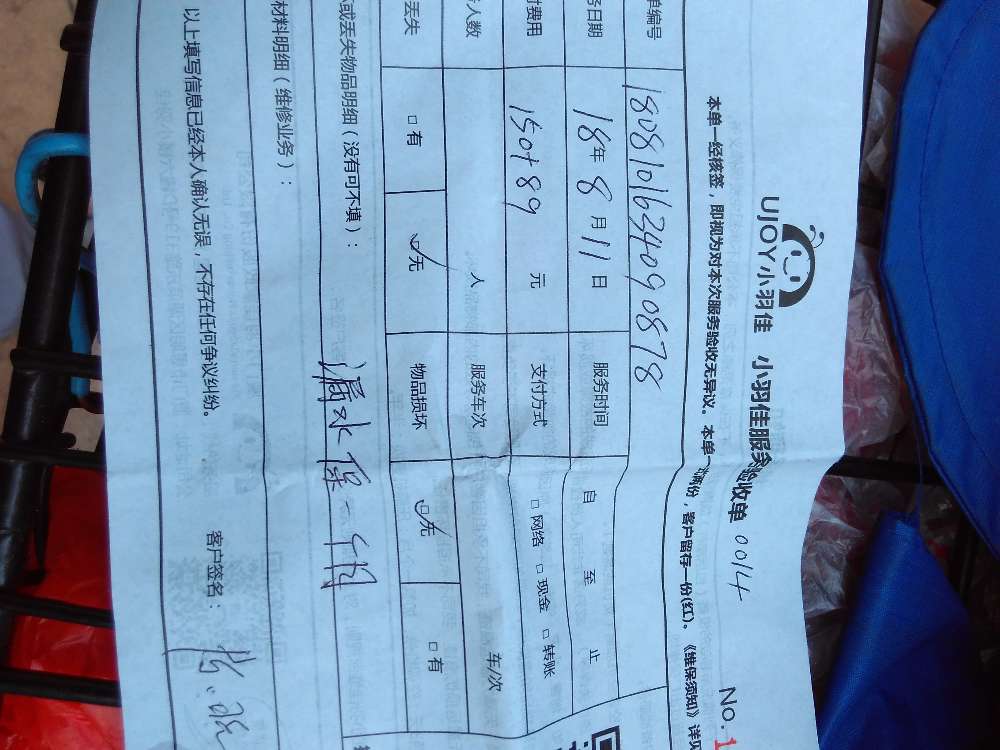 UJOY小羽佳 小羽佳服务验收单 0014
No.1
本单一经核签，即视为对本次服务验收无异议。本单一式两份，客户留存一份(红)。《维保须知》详见
单编号 1808101634090878
务日期 18年8月11日 服务时间 自 至 止
付费用 150+89 元 支付方式 □网络 □现金 □转账
人数 人 服务车次 车/次
丢失 □有 ☑无 物品损坏 ☑无 □有
或丢失物品明细（没有可不填）： 漏水保一个月
材料明细（维修业务）：
以上填写信息已经本人确认无误，不存在任何争议纠纷。 客户签名：